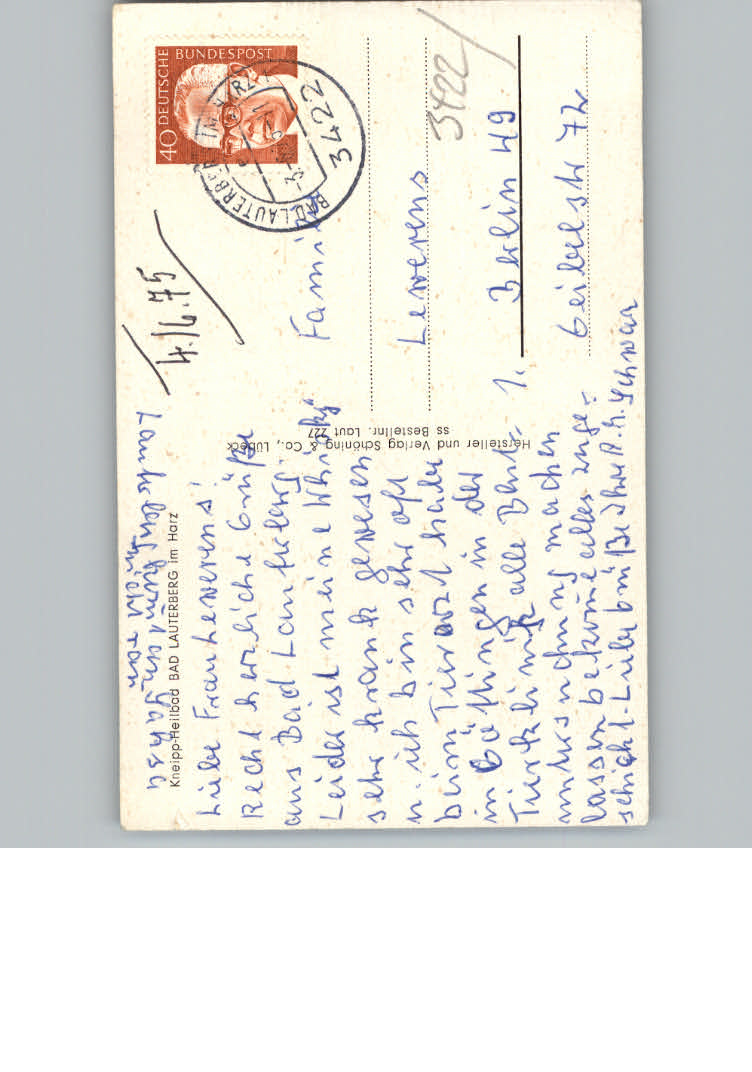 Kneipp-Heilbad BAD LAUTERBERG im Harz
Liebe Frau Lewerens!
Recht herzliche Grüße
aus Bad Lauterberg.
Leider ist meine Whisky
sehr krank gewesen
u. ich bin sehr oft
beim Tierarzt habe
in Göttingen in der
Tierklinik alle Blut=
untersuchung machen
lassen bekome alles zuge=
schickt. Liebe Grüße Ihre
nicht
4./6.75
DEUTSCHE BUNDESPOST
40
3422 BAD LAUTERBERG IM HARZ 1
Hersteller und Verlag Schöning & Co., Lübeck
ss Bestellnr. Laut 227
3422
Familie
Lewerens
1. Berlin 49
Geibelstr 72